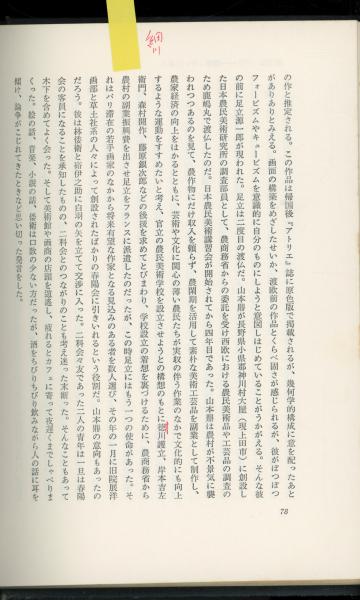 細川
の作と推定される。この作品は帰国後『アトリエ』誌に原色版で掲載されるが、幾何学的構成に意を配ったあと
がありありとみえる。画面の構築をめざしたせいか、渡欧前の作品とくらべ固さが感じられるが、彼がぼつぼつ
フォービズムやキュービズムを意識的に自分のものにしようと意図しはじめていることがうかがえる。そんな彼
の前に足立源一郎が現われた。足立は二度目の渡仏だった。山本鼎が長野県小県郡神川村大屋(現上田市)に創設し
た日本農民美術研究所の調査部員として、農商務省からの委託を受け西欧における農民美術品や工芸品の調査の
ため鹿嶋丸で渡仏したのだ。日本農民美術講習会が開始されてから四年目であった。山本鼎は農村が不景気に襲
われつつあるのを見て、農作物にだけ収入を頼らず、農閑期を活用して素朴な美術工芸品を副業として制作し、
農家経済の向上をはかるとともに、芸術や文化に関心の薄い農民たちが実収の伴う作業のなかで文化的にも向上
するような運動をすすめたいと考え、官立の農民美術学校を設立させようとの構想のもとに徳川護立、岸本吉左
衛門、森村開作、藤原銀次郎などの後援を求めてとびまわり、学校設立の着想を裏づけるために、農商務省から
農村の副業振興費を出させ足立をフランスに派遣したのだったが、この時足立にはもう一つの使命があった。そ
れはパリ滞在の若手画家のなかから将来有望な作家となる見込みのある者を数人選び、その年の一月に旧院展洋
画部と草土社系の人々によって創設されたばかりの春陽会に引きいれるという役割だ。山本鼎の意向もあったの
だろう。彼は林倭衛と硲伊之助に白羽の矢を立てて交渉に入った。二科会々友であった二人の青年は一旦は春陽
会の客員になることを承知したものの、二科会とのつながりのことも考え迷った末断った。そんなこともあって
木下を含めてよく会った。そして美術館や画商の店頭を逍遙し、疲れるとカフェに寄って夜遅くまでしゃべりま
くった。絵の話、音楽、小説の話、倭衛は口数の少ない方だったが、酒をちびりちびり飲みながら人の話に耳を
傾け、論争がこじれてきたときなど思い切った発言をした。
78